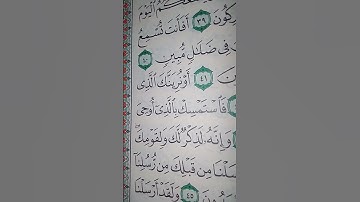 كُمُ ٱلْيَوْمَ
رِكُونَ ٣٩ أَفَأَنتَ تُسْمِعُ
فِى ضَلَٰلٍ مُّبِينٍ ٤٠
٤١ أَوْ نُرِيَنَّكَ ٱلَّذِى
فَٱسْتَمْسِكْ بِٱلَّذِىٓ أُوحِىَ
وَإِنَّهُۥ لَذِكْرٌ لَّكَ وَلِقَوْمِكَ ۖ
سَلْنَا مِن قَبْلِكَ مِن رُّسُلِنَآ
ونَ ٤٥ وَلَقَدْ أَرْسَلْنَا